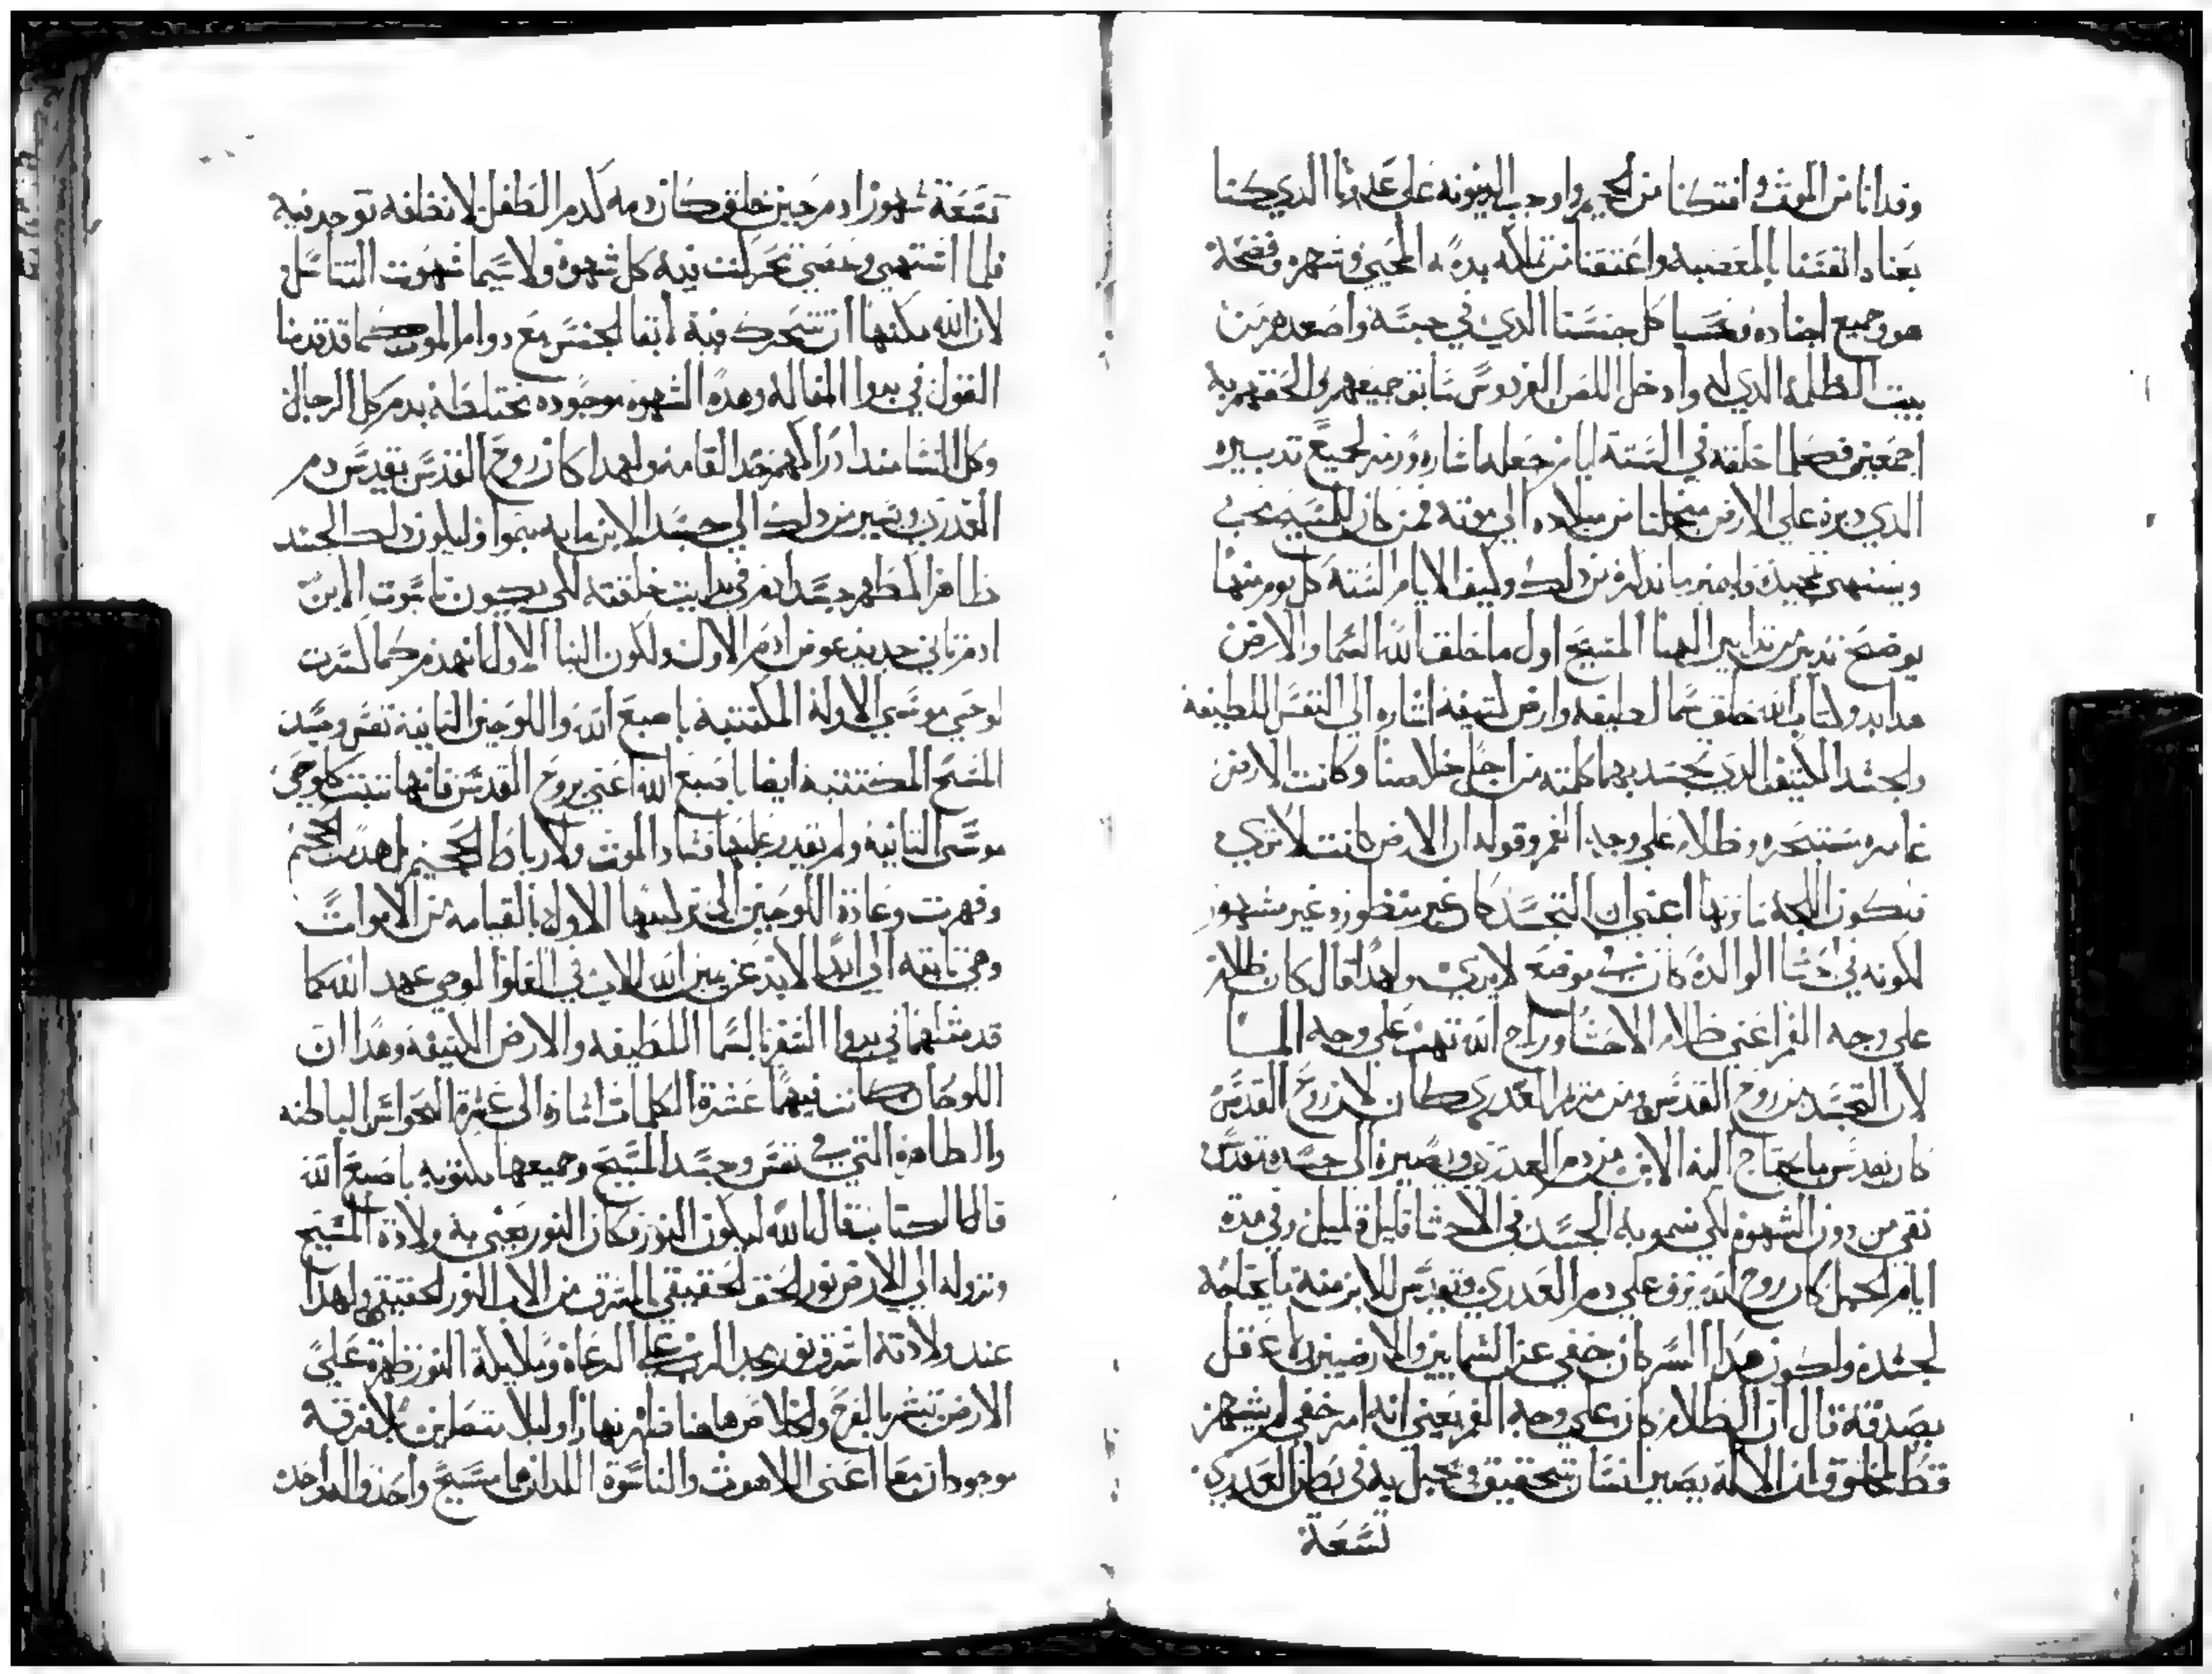 وفدانا من الموت وافتكنا من الجحيم واوجب الدينونه على عدونا الذي كنا
بعنا دانفسنا بالمعصيه واعتقنا من ملكه بدمه المحيي وشهره وفضحه
هو وجميع اجناده وسبا كل جنسنا الدي في حبسه واصعدهم من
بيت الظلمه الدي له وادخل اللص الفردوس سابق جميعهم والحقهم به
اجمعين فكلما خلقه في السته ايام جعله اشاره ورمز لجميع تدبيره
الدي دبره على الارض من اجلنا من ميلاده الى موته فمن كان للمسيح محب
ويشتهي تمجيده فليميز ما ندكره من دلك وكيف الايام السته كل يوم منها
يوضح تدبير من تدابير الهنا المسيح اول ما خلق الله السما والارض
هدا بدو كتاب الله خلق سما لطيفه وارض كتيفه اشاره الى النفس اللطيفه
والجسد الكتيف الدي تجسد بهما كلمته من اجل خلاصنا وكانت الارض
غامره مستبحره وظلام على وجه الغمر وقوله ان الارض كانت لا ترى
فتكون اللجه ساترتها اعني ان التجسد كان غير منظور وغير مشهور
لكونه في حشا الوالده كان في موضع لا يرى ولهدا قال كان ظلام
على وجه الغمر اعني ظلام الاحشا وراح الله تهب على وجه المــا
لان التجسد من روح القدس ومن مريم العدرى كان لان روح القدس
كان يقدس ما يحتاج اليه الابن من دم العدرى ويصيره الى جسده بتقدس
نقي من دون الشهوه لكي ينمو به الجسد في الاحشا قليل قليل وفي مده
ايام الحمل كان روح الله يرف على دم العدرى ويقدس للابن منه ما يحتاجه
لجسده ولكون هدا السر كان خفي عن السمايين والارضيين ما عقل
يصدقه قال ان الظلام كان على وجه الغمر يعني انه امر خفي لم يشهر
قط لمخلوق ان الاله يصير انسان بتحقيق ويحبل به في بطن العدرى
تسعة
تسعة شهور ادم حين خلق كان دمه كدم الطفل لا نطافه توجد فيه
فلما اشتهى وعصى تحركت فيه كل شهوه ولا سيما شهوت التناسل
لان الله مكنها ان تتحرك فيه لبقا الجنس مع دوام الموت كما قد قدمنا
القول في بدوا المقاله وهده الشهوه موجوده مختلطه بدم كل الرجال
وكل النسا مند ادراكهم حد القامه ولهدا كان روح القدس يقدس دم
العدرى ويصير من دلك الى جسد الابن ما به ينموا وليكون دلك الجسد
طاهر المطهر جسد ادم في بدايت خلقته لكي يكون ناسوت الابن
ادم تاني جديد عوض ادم الاول ولكون البنا الاول انهدم كما كسرت
لوحي موسى الاوله المكتتبه باصبع الله واللوحين التانيه نفس وجسد
المسيح المكتتبه ايضا باصبع الله اعني بروح القدس فانها تبتت كلوحي
موسى التانيه ولم يقدر عليها فساد الموت ولا رباط الجحيم بل هدت الجحيم
وقهرت وعادة اللوحين الى تركيبها الاول بالقيامه من الاموات
وهي تابته الى ابد الابد عن يمين الله الاب في العلوا لوحي عهد الله كما
قد مثلهما في بدوا السفر بالسما اللطيفه والارض الكتيفه وهدا ان
اللوحان كانت فيهما عشرة الكلمات اشاره الى عشرة الحواس الباطنه
والطاهره التي في نفس وجسد المسيح وجميعها مكتوبه باصبع الله
قال الكتاب فقال الله ليكون النور فكان النور يعني به ولادة المسيح
ونزوله الى الارض نور الحق الحقيقي المشرق من الاب النور الحقيقي ولهدا
عند ولادته اشرق نور مجد الرب على الرعاه وملايكة النور ظهره على
الارض تبشر بالفرح والخلاص هاهنا فلهم نهارا وليلا متصلين بلا فرقه
موجودان معا اعني اللاهوت والناسوة اللدان هما مسيح واحد والمواحد